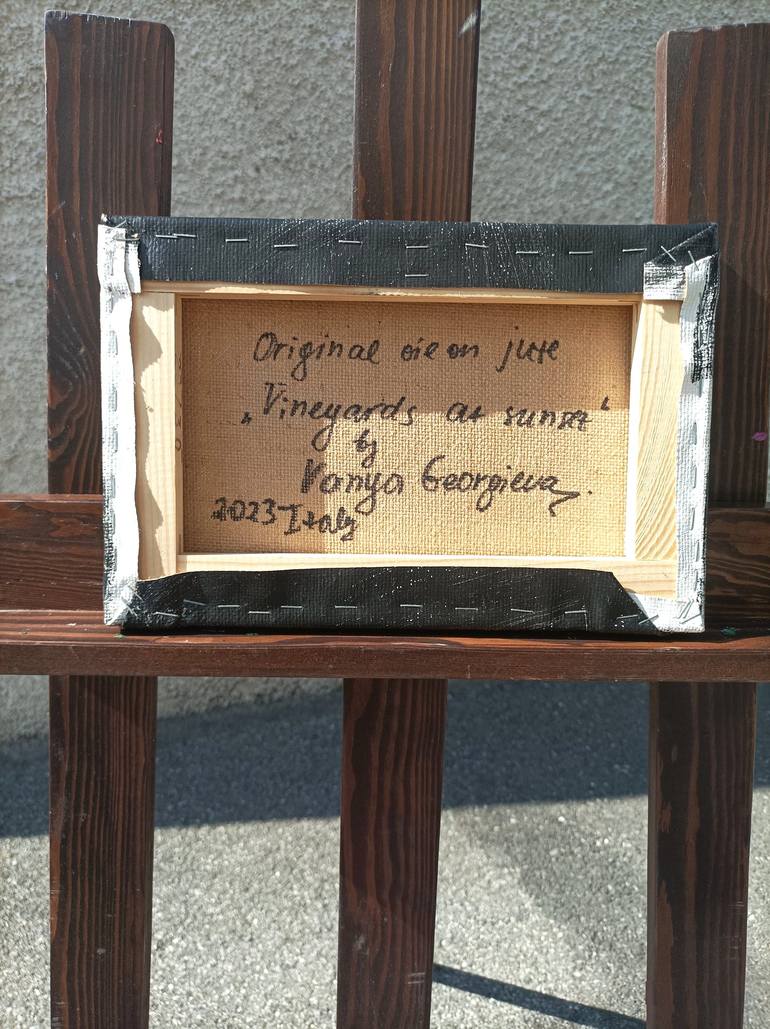 Original oil on jute
„Vineyards at sunset“
by
Vanya Georgieva
2023 Italy